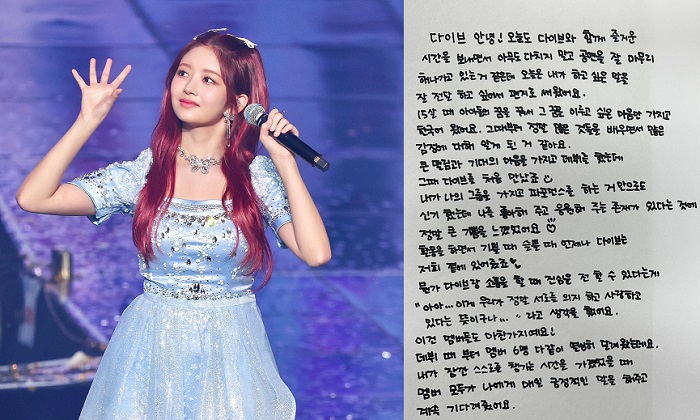 다이브 안녕! 오늘도 다이브와 함께 즐거운
시간을 보내면서 아무도 다치지 말고 공연을 잘 마무리
해나가고 있는거 같은데 오늘은 내가 하고 싶은 말을
잘 전달 하고 싶어서 편지로 써왔어요.
15살 때 아이돌의 꿈을 꿔서 그 꿈을 이루고 싶은 마음만 가지고
한국에 왔어요. 그때부터 정말 많은 것들을 배우면서 많은
감정에 대해 알게 된 거 같아요.
큰 떨림과 기대의 마음을 가지고 데뷔를 했는데
그때 다이브를 처음 만났죠
내가 나의 그룹을 가지고 퍼포먼스를 하는 거 만으로도
신기 했는데 나를 좋아해 주고 응원해 주는 존재가 있다는 것에
정말 큰 기쁨을 느꼈었어요
활동을 하면서 기쁠 때 슬플 때 언제나 다이브는
저희 곁에 있어줬죠
뭔가 다이브랑 소통을 할 때 진심을 전 할 수 있다는게
"아아... 이게 우리가 정말 서로를 의지 하고 사랑하고
있다는 뜻이구나..." 라고 생각을 했어요.
이건 멤버들도 마찬가지예요!
데뷔 때 부터 멤버 6명 다같이 열심히 달려왔는데요.
내가 잠깐 스스로를 챙기는 시간을 가졌었을 때
멤버 모두가 나에게 매일 긍정적인 말을 해주고
계속 기다려줬어요.